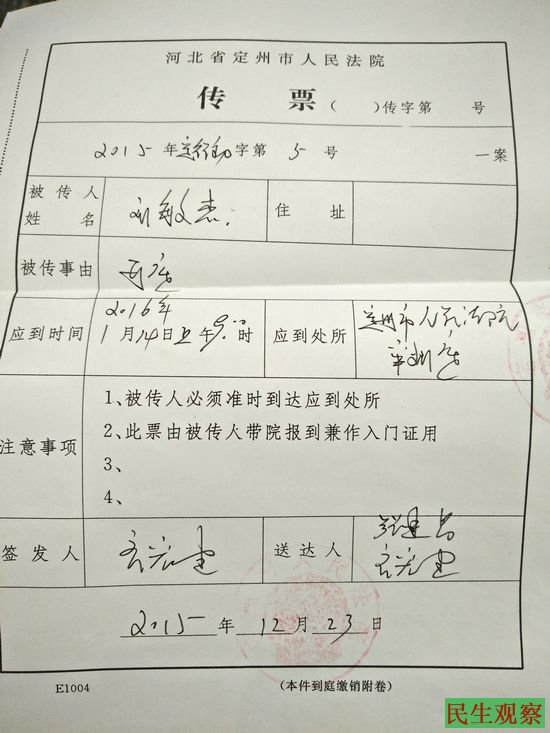 河北省定州市人民法院
传 票 ( )传字第 号
2015年定行初字第 5 号 一案
被传人姓名 刘敏杰 住址
被传事由 开庭
应到时间 2016年1月14日上午9:00时 应到处所 定州市人民法院审判庭
注意事项
1、被传人必须准时到达应到处所
2、此票由被传人带院报到兼作入门证用
3、
4、
签发人 送达人
2015年12月23日
E1004 (本件到庭缴销附卷)
民生观察